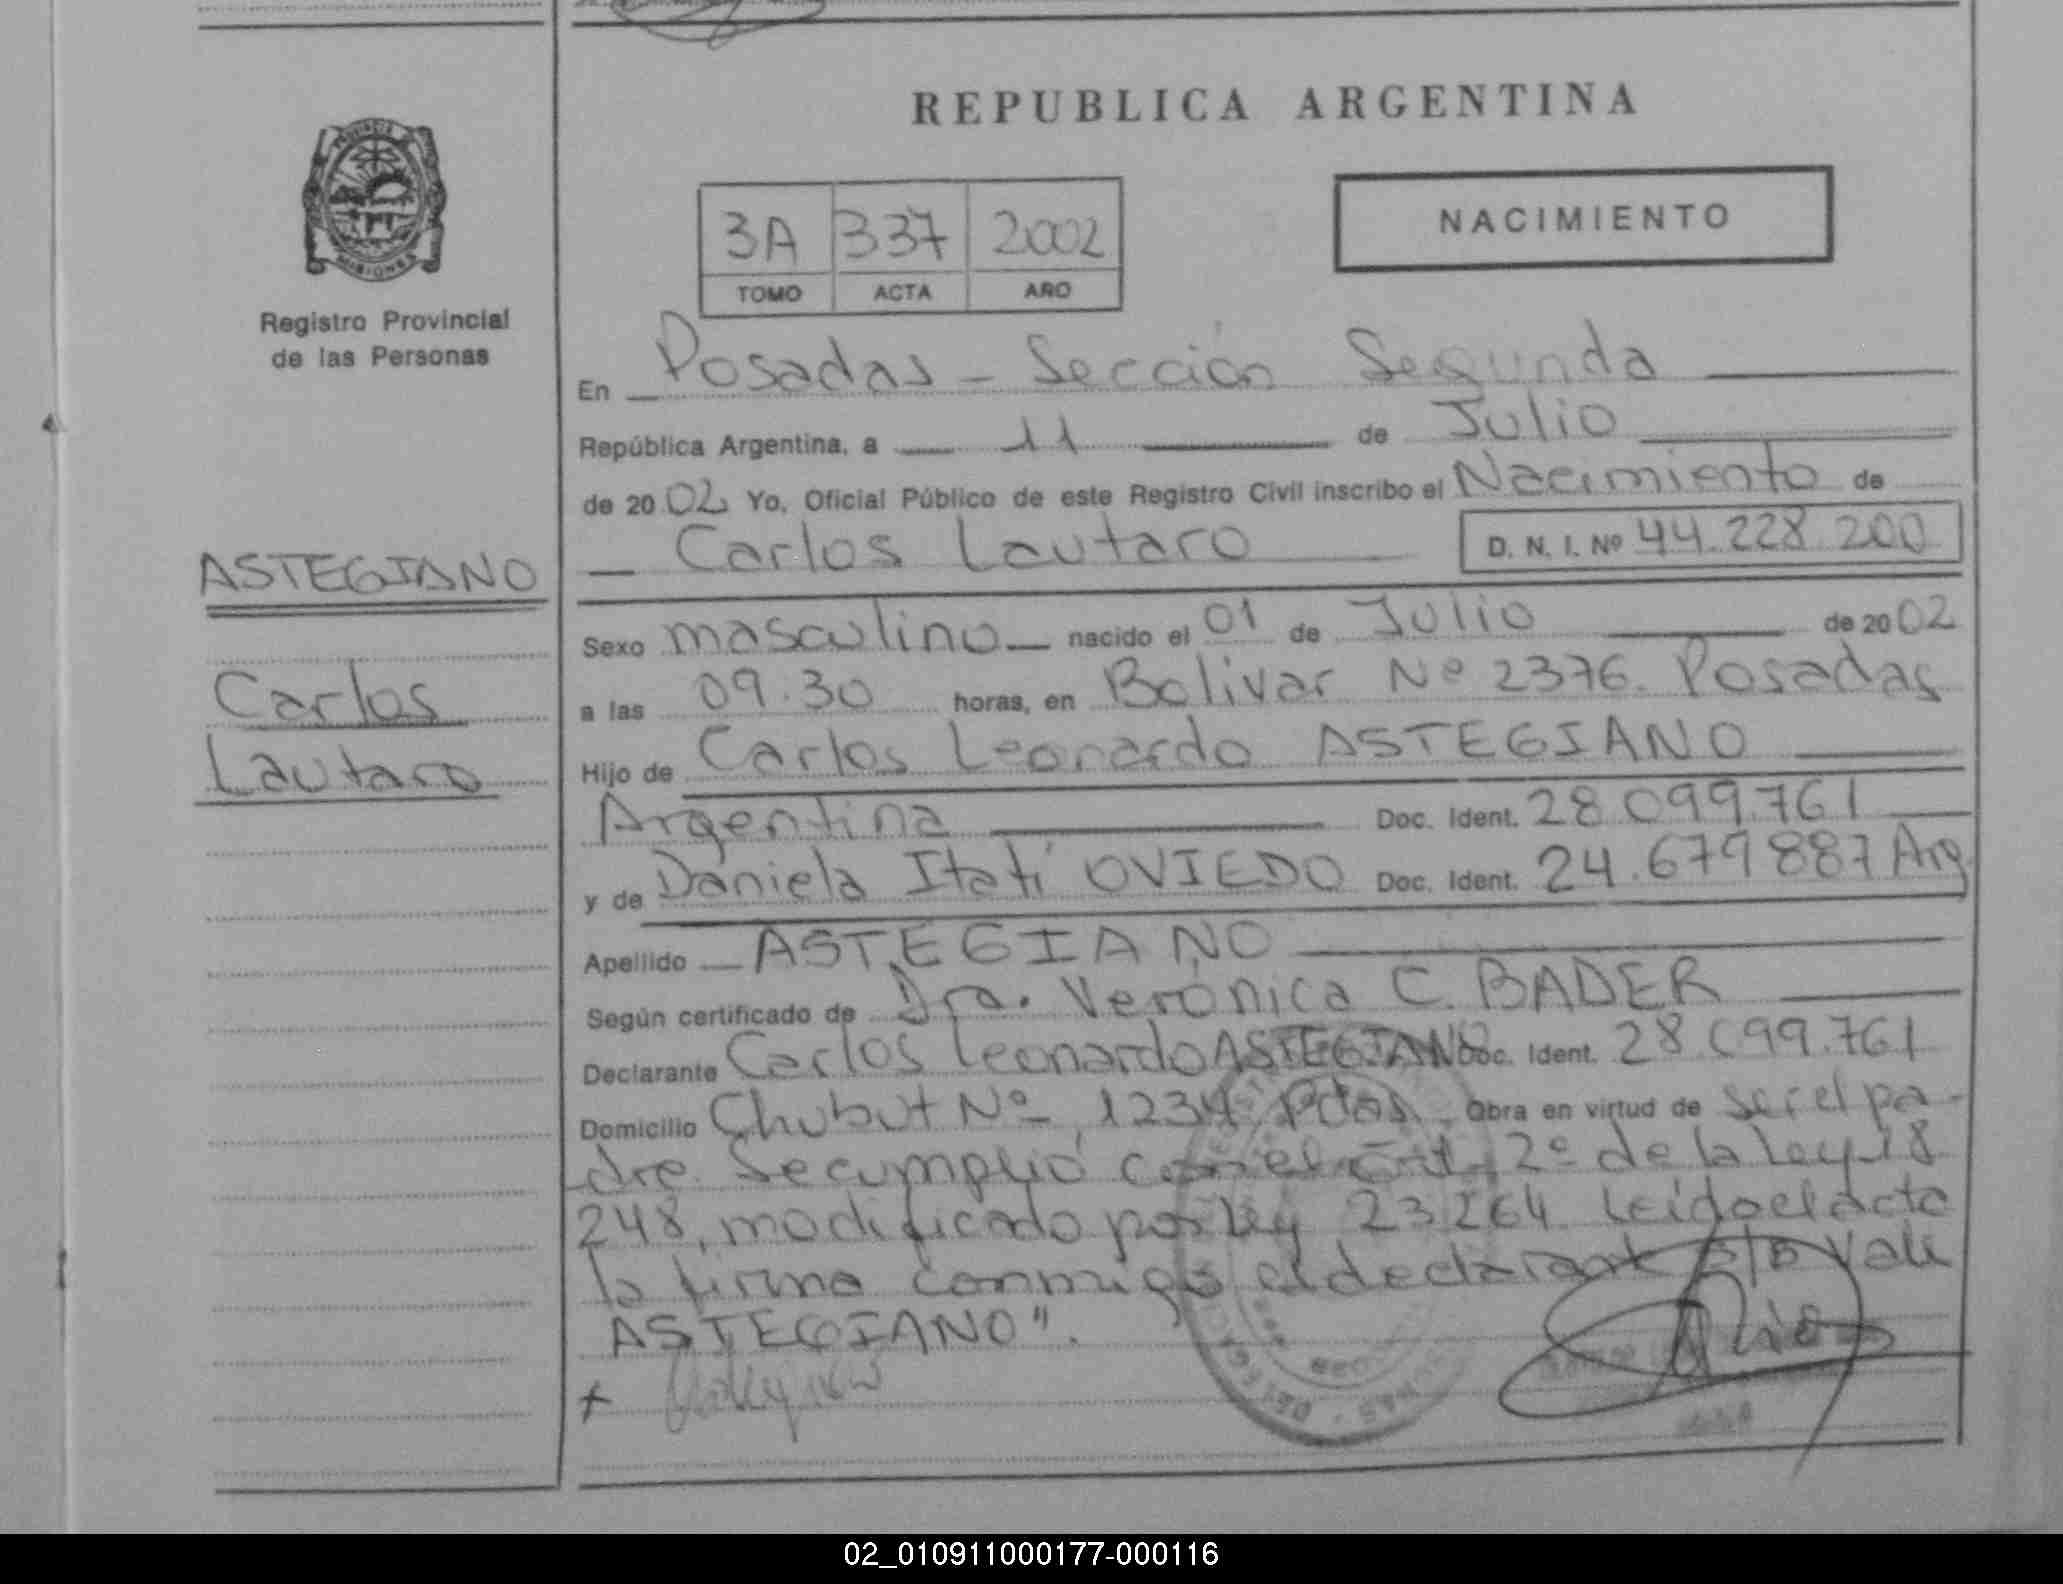 REPUBLICA ARGENTINA
PROVINCIA DE
MISIONES
Registro Provincial
de las Personas
3A 337 2002
TOMO ACTA AÑO
NACIMIENTO
En Posadas - Sección Segunda
República Argentina, a 11 de Julio
de 2002 Yo, Oficial Público de este Registro Civil inscribo el Nacimiento de
Carlos Lautaro D. N. I. Nº 44.228.200
ASTEGIANO
Carlos
Lautaro
Sexo masculino nacido el 01 de Julio de 2002
a las 09.30 horas, en Bolivar Nº 2376. Posadas
Hijo de Carlos Leonardo ASTEGIANO
Argentina Doc. Ident. 28.099.761
y de Daniela Itatí OVIEDO Doc. Ident. 24.679887 Arg
Apellido ASTEGIANO
Según certificado de Dra. Verónica C. BADER
Declarante Carlos Leonardo ASTEGIANO Doc. Ident. 28.099.761
Domicilio Chubut Nº 1234 Pdas Obra en virtud de ser el pa-
dre. Se cumplió con el art. 2º de la Ley 18
248, modificado por ley 23264 leido el acta
la firma conmigo el declarante s/b Vale
ASTEGIANO".
02_010911000177-000116